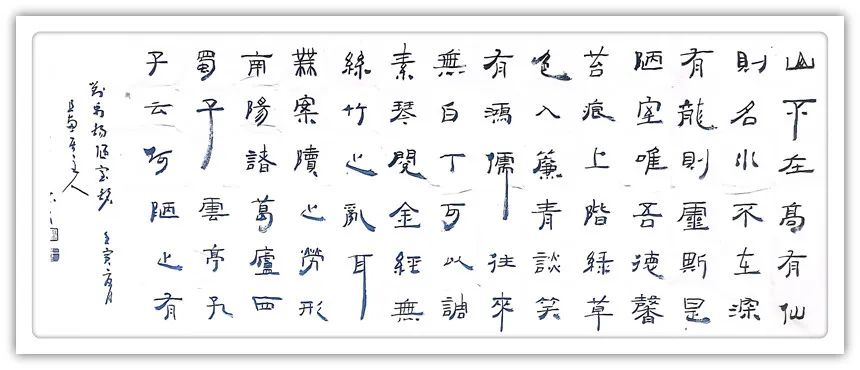 山不在高有仙
則名水不在深
有龍則靈斯是
陋室唯吾德馨
苔痕上階綠草
色入簾青談笑
有鴻儒往來
無白丁可以調
素琴閱金經無
絲竹之亂耳
橆案牘之勞形
南陽諸葛廬西
蜀子雲亭孔
子云何陋之有
劉禹錫陋室銘 壬寅夏月
主人